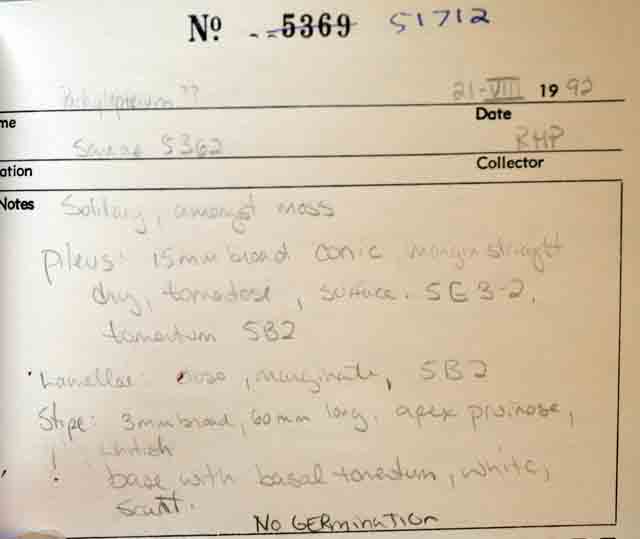 Nº --5369 51712
21-VIII 1992
me Date
Same 5362 RHP
ation Collector
Notes Solitary, amongst moss
pileus: 15mm broad conic margin straight
dry, tomentose, surface. 5E3-2,
tomentum 5B2
Lamellae: , marginate, 5B2
Stipe: 3mm broad, 60mm long, apex pruinose,
! whitish
! base with basal tomentum, white,
scant.
No GERMINATION